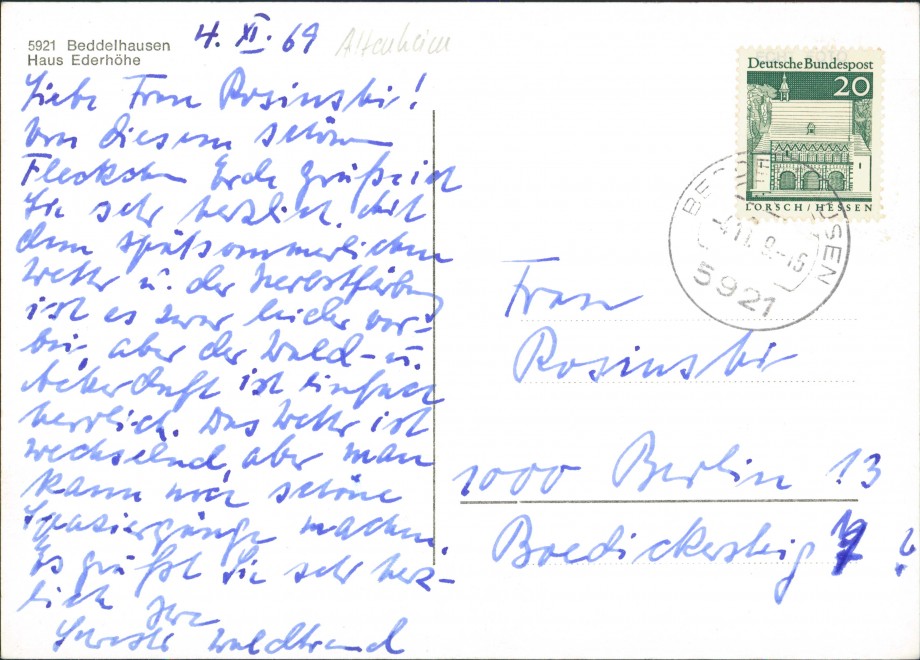 5921 Beddelhausen
Haus Ederhöhe
4. XI. 69
Altenheim
Liebe Frau Rosinski!
Von diesem schönen
Fleckchen Erde grüße ich
Sie sehr herzlich. Mit
dem spätsommerlichen
Wetter u. der Herbstfärbung
ist es zwar leider vor-
bei, aber der Wald- u.
Ackerduft ist einfach
herrlich. Das Wetter ist
wechselnd, aber man
kann noch schöne
Spaziergänge machen.
Es grüßt Sie sehr herz-
lich Ihre
Schwester Waldtraud
Deutsche Bundespost
20
LORSCH/HESSEN
5921
Frau
Rosinski
1000 Berlin 13
Boedickersteig 7